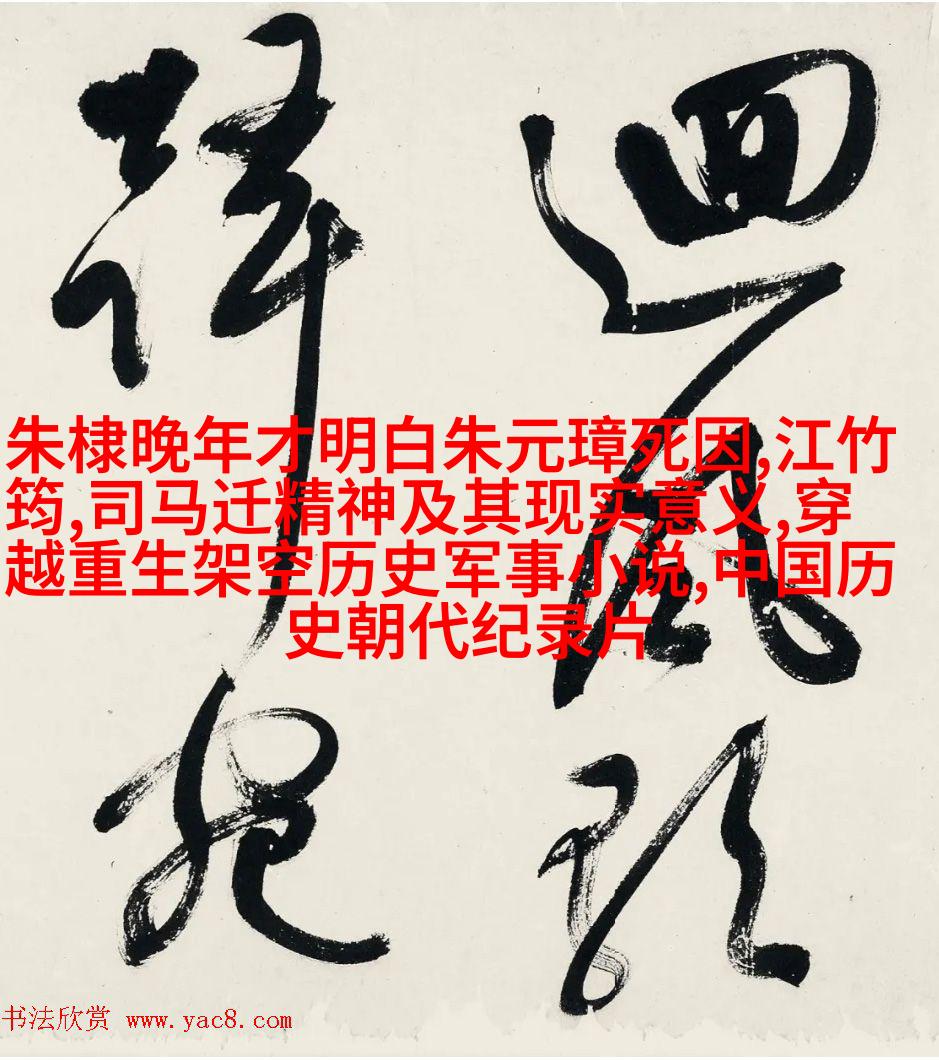 迴風
朱棣晚年才明白朱元璋死因,江竹
筠,司马迁精神及其现实意义,穿
越重生架空历史军事小说,中国历
史朝代纪录片
书法欣赏 www.yac8.com